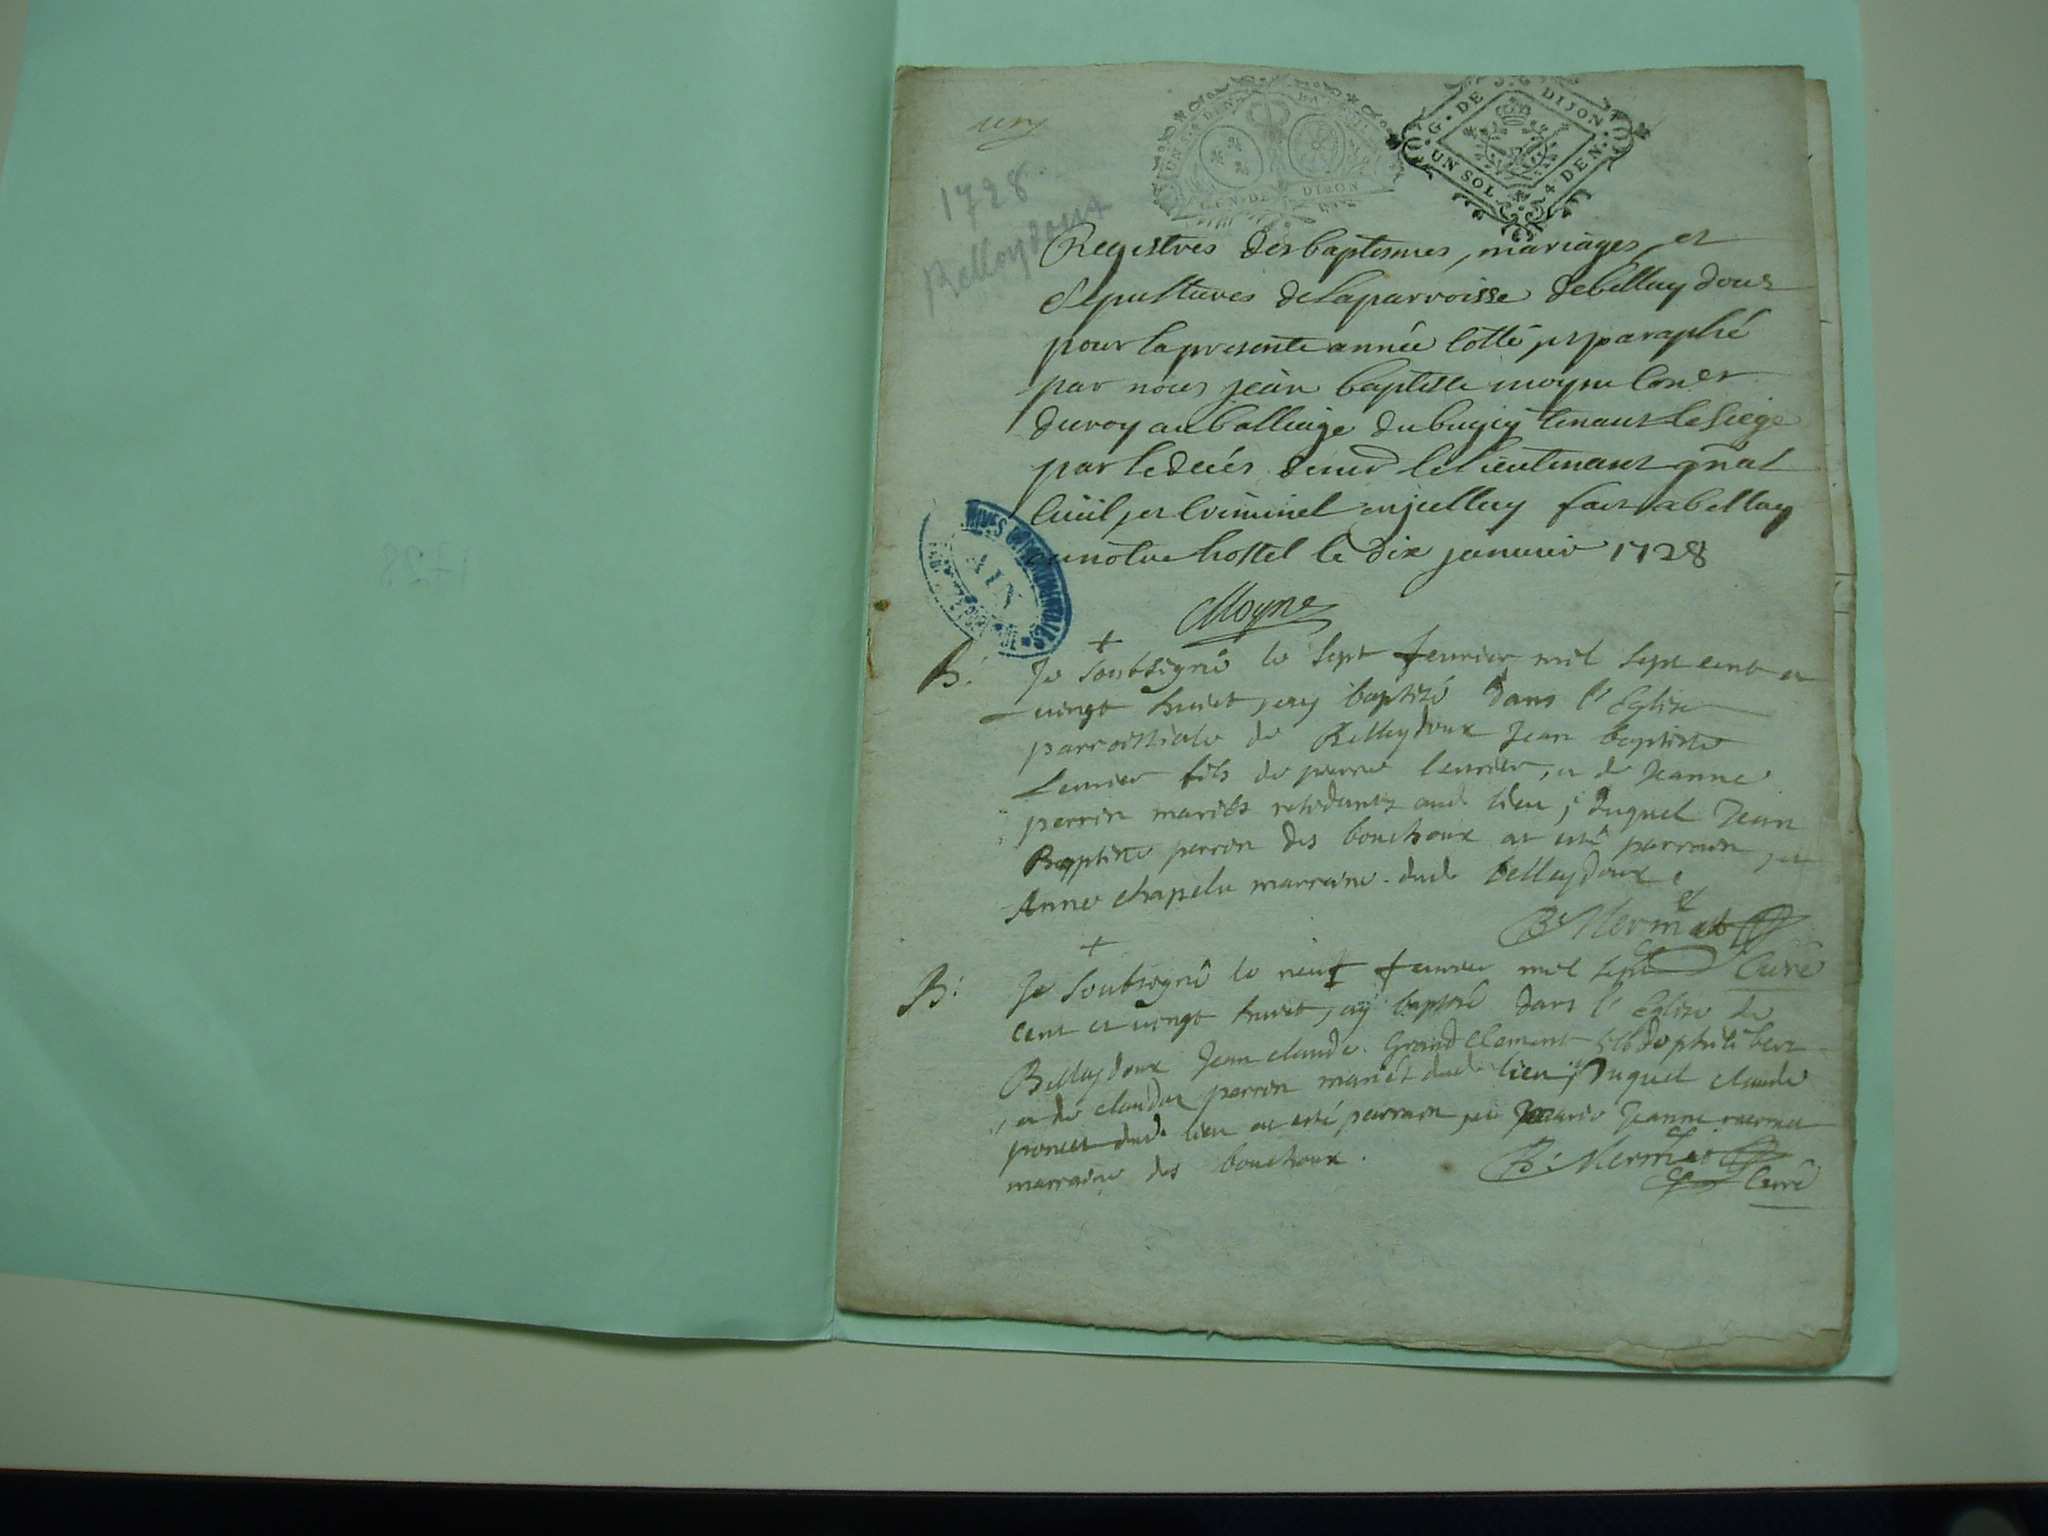 1728
Belleydoux
UN S. DEN
GEN. DE DIJON
G. DE DIJON
UN SOL 4 DEN.
Registres des baptesmes, mariages, et
sepultures de la parroisse de belleydoux
pour la presente année cotté et paraphé
par nous jean baptiste moyne Con.er
du roy au balliage du bugey tenant le siege
par le deces de mr le lieutenant gñal
Ciuil et Criminel en jcelluy fait a belley
en notre hostel le dix januier 1728
Moyne
AIN
B. Je soubsigné le sept feurier mil sept cent et
vingt huict, ay baptisé dans l'Eglise
parroissiale de Belleydoux Jean baptiste
fils de pierre et de Jeanne
perrin mariés residants aud. lieu, duquel Jean
Baptiste perron des bouchoux at esté parrain, et
Anne chapelu marraine dud. belleydoux.
B. Mermet
Curé
B: Je soubsigné le neuf feurier mil sept
cent et vingt huict, ay baptisé dans l'Eglise de
Belleydoux Jean claude Grand Clement fils de philibert
et de claudaz perron mariés dud. lieu, duquel claude
poncet dud. lieu at esté parrain, et marie Jeanne mermet
marraine des bouchoux.
B. Mermet
Curé